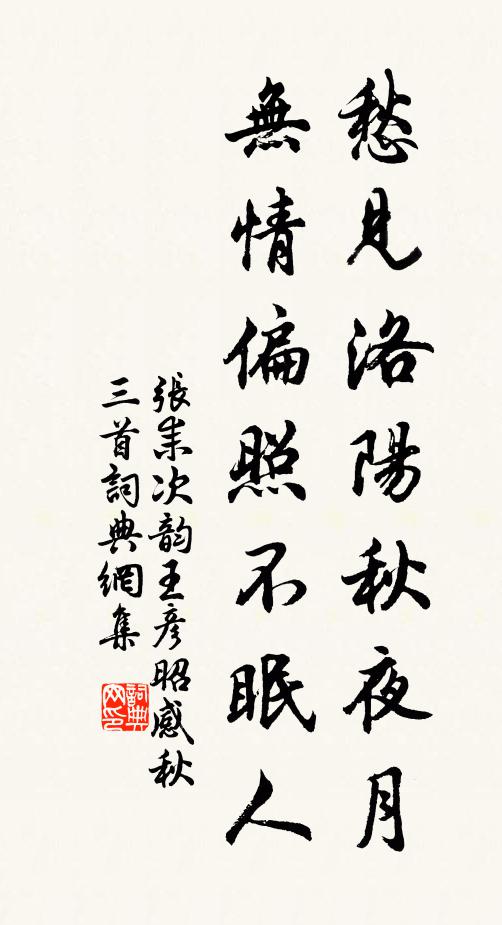 愁見洛陽秋夜月
無情偏照不眠人
張耒次韵王彦昭感秋
三首詞典網集
詞典网印